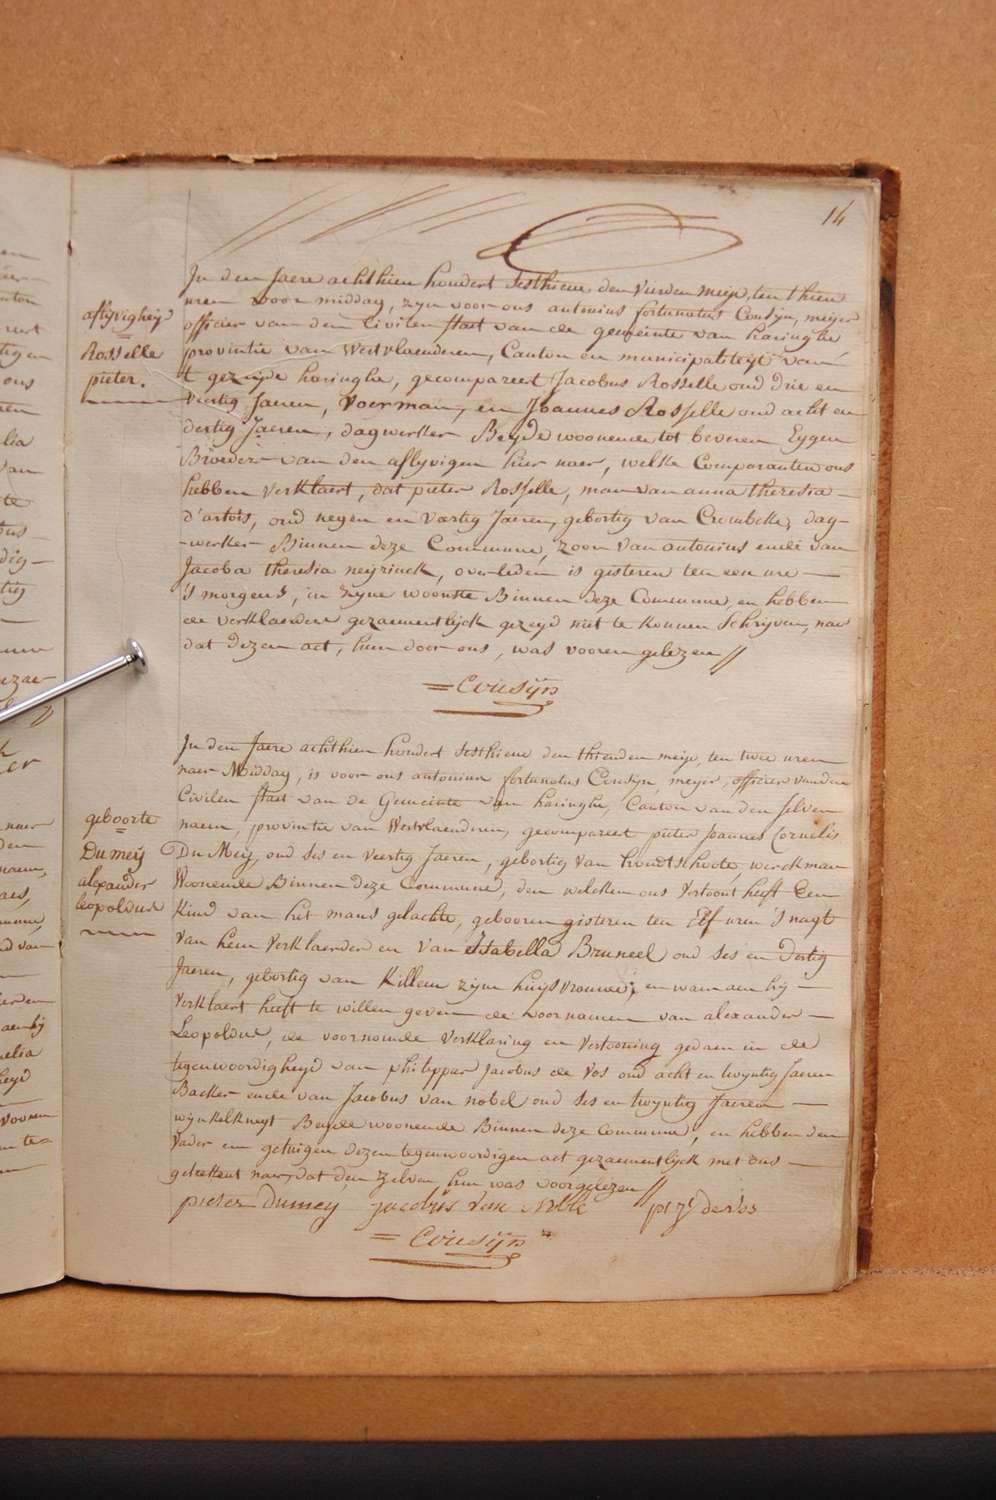 14
In den Jaere achthien hondert sesthiene, den vierden meije, ten thien
uren voor middag, zyn voor ons antonius fortunatus Cousyn, meyer
officier van den Civilen staet van de gemeente van haringhe
provintie van Westvlaenderen, Canton en municipaliteyt van
't gezeyde haringhe, gecompareert Jacobus Rosselle oud drie en
veertig Jaeren, voerman, en Joannes Rosselle oud acht en
dertig Jaeren, dagwerker Beyde woonende tot beveren Eygen
Broeders van den aflyvigen hier naer, welke Comparanten ons
hebben verklaert, dat pieter Rosselle, man van anna theresia
d'artois, oud negen en vartig Jaeren, gebortig van Crombeke, dag-
-werker Binnen deze Commune, zoon van antonius ende van
Jacoba theresia neyrinck, overleden is gisteren ten een ure
's morgens, in zyne woonste Binnen deze Commune, en hebben
de verklaerders gezaementlyck gezeyd niet te konnen schryven, naer
dat dezen act, hun door ons, was vooren gelezen //
= Cousijn
aflyvigheyd
Rosselle
pieter.
In den Jaere achthien hondert sesthiene den thienden meije, ten twee uren
naer Middag, is voor ons antonius fortunatus Cousyn, meyer, officier van den
Civilen staet van de Gemeente van haringhe, Canton van den selven
naem, provintie van Westvlaenderen, gecompareert pieter Joannes Cornelis
Du Mey, oud ses en veertig Jaeren, gebortig van hondtschoote, werckman
Woonende Binnen deze Commune, den welcken ons vertoont heeft Een
kind van het mans geslachte, gebooren gisteren ten Elf uren 's nagt
van hem Verklaerder en van Isabella Bruneel oud ses en dertig
Jaeren, gebortig van Killem zyne huysvrouwe; en waer aen hy
verklaert heeft te willen geven de voornamen van alexander
Leopoldus, de voornoemde verklaring en vertooning gedaen in de
tegenwoordigheyd van philippus jacobus de vos oud acht en twyntig Jaeren
Backer ende van Jacobus van nobel oud ses en twyntig Jaeren
wynkelknegt Beyde woonende Binnen deze Commune, en hebben den
vader en getuigen dezen tegenwoordigen act gezaementlyck met ons
geteekent naer dat den zelven, hun was voorgelezen //
pieter Dumey jacobus van nobel p: j: de vos
= Cousijn
geboorte
Dumeij
alexander
leopoldus